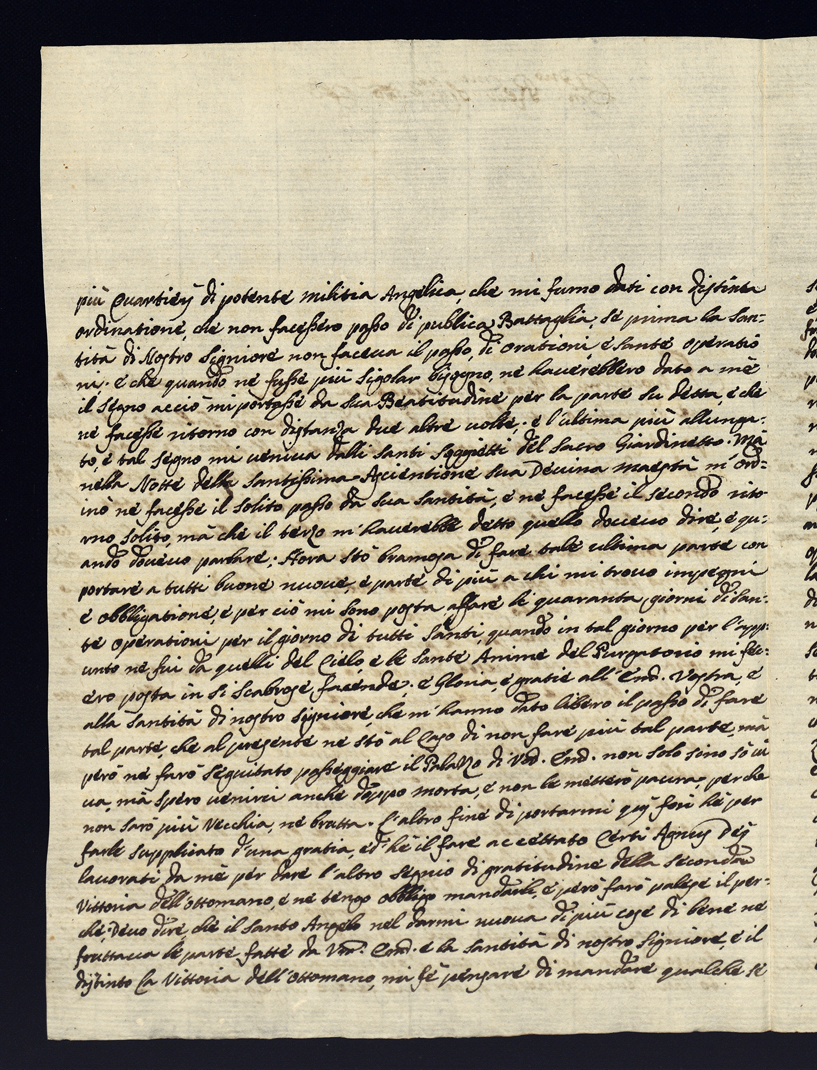 più Quartieŋ di potente militia Angelica, che mi furno dati con distinta
ordinatione, che non facessero passo di publica Battaglia, se prima la San:
tità di Nostro Signiore non faceua il passo, di orationi, e sante operatio
ni. e che quando ne fusse più sigolar bisogno, ne hauerebbero dato a me
il segno acciò mi portasse da sua Beatitudine per la parte su detta, e che
ne facesse ritorno con distanza due altre uolte. e l'ultima più allunga:
to, e tal segno mi ueniua dalli santi Soggietti del Sacro Giardinetto. Mà
nella Notte della Santissima Ascientione sua Deuina maestà m'ord:
inò ne facesse il solito passo da sua santità, e ne facesse il secondo rito
rno solito, mà che il terzo m'hauerebbe detto quello doueuo dire, e qu:
ando doueuo parlare; Hora stò bramosa di fare tale ultima parte con
portare a tutti buone nuoue, e parte di più a chi mi trouo impegni
e obbligatione, e per ciò mi sono posta affare le quaranta giorni di san:
te operationi per il giorno di tutti santi, quando in tal giorno per l'app:
unto ne fui da quelli del Cielo, e le sante Anime del Purgatorio mi fec:
ero posta in si scabrose facende. e Gloria, e gratie all'Em.ᵃ Vostra, e
alla santità di nostro signiore, che m'hanno dato libero il passo di fare
tal parte, che al presente ne stò al Caso di non fare più tal parte, mà
però ne farò seguitato passeggiare il Palazzo di Vos. Em.ᵃ non solo sino sò ui
ua, mà spero uenirci anche doppo morta, e non le metterò paura, perche
non sarò più Vecchia, ne brutta. l'altro fine di portarmi quj fori hè per
farle supplicato d'una gratia, ed hè il fare accettato Certi Agnus Dej
lauorati da me per dare l'altro segnio di gratitudine della seconda
Vittoria dell'Ottomano, e ne tengo obbligo mandarle, e però farò palese il per:
chè, Deuo dire, che il santo Angelo nel darmi nuoua di più cose di bene ne
fruttaua le parte fatte da Vos. Em.ᵃ e la santità di nostro signiore, e il
distinto la Vittoria dell'Ottomano, mi fè pensare di mandare qualche se